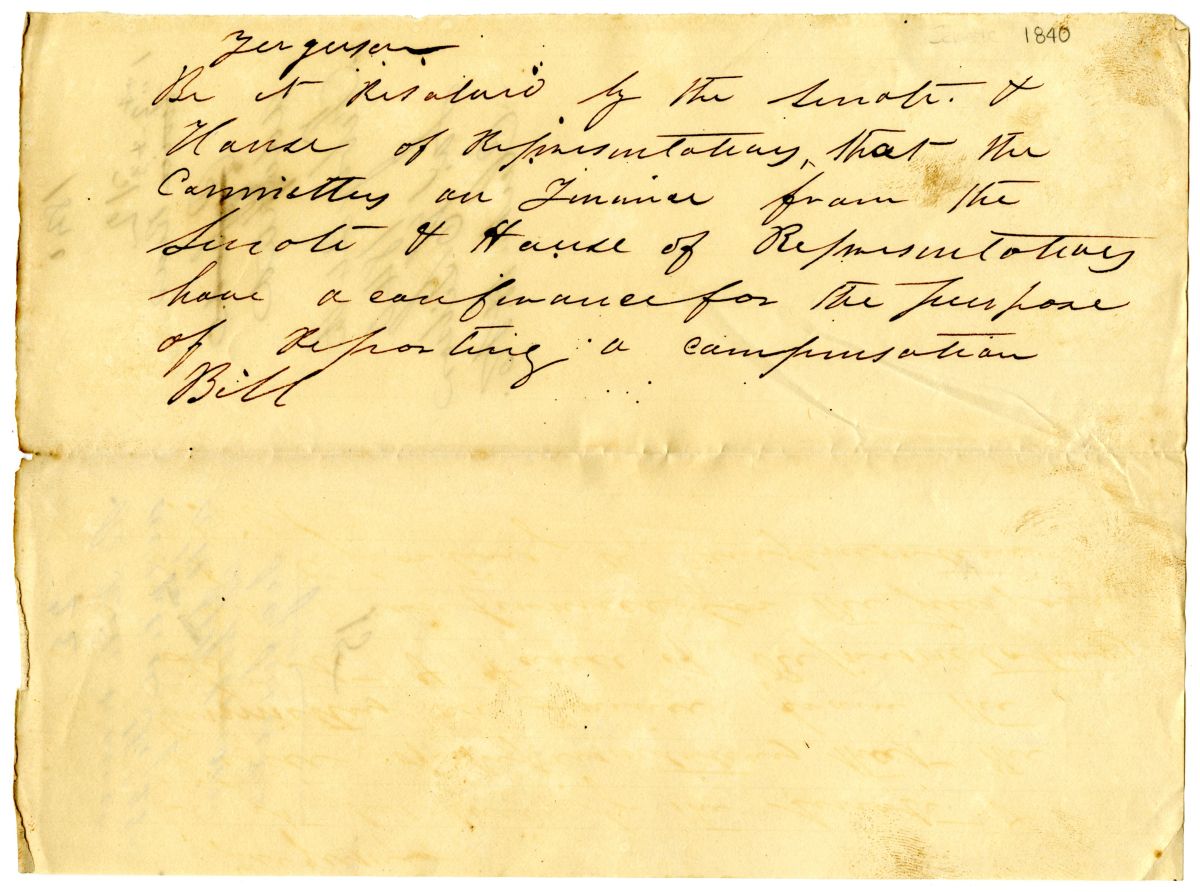 1840
Ferguson
Be it Resolved by the Senate &
House of Representatives, that the
Committees on Finance from the
Senate & House of Representatives
have a confinance for the purpose
of Reporting a compensation
Bill